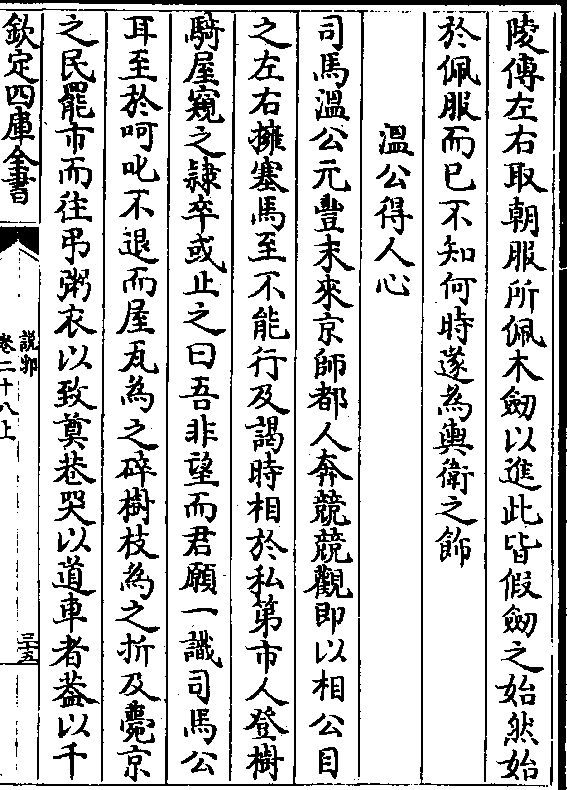 陵傅左右取朝服所佩木劒以進此皆假劒之始然始
於佩服而已不知何時遂為輿衛之飾
溫公得人心
司馬溫公元豐末來京師都人奔競競觀即以相公目
之左右擁塞馬至不能行及謁時相於私第市人登樹
騎屋窺之隷卒或止之曰吾非望而君願一識司馬公
耳至於呵叱不退而屋瓦為之碎樹枝為之折及薨京
之民罷市而往弔粥衣以致奠巷哭以過車者葢以千
欽定四庫全書
說郛
卷二十八上
三十五